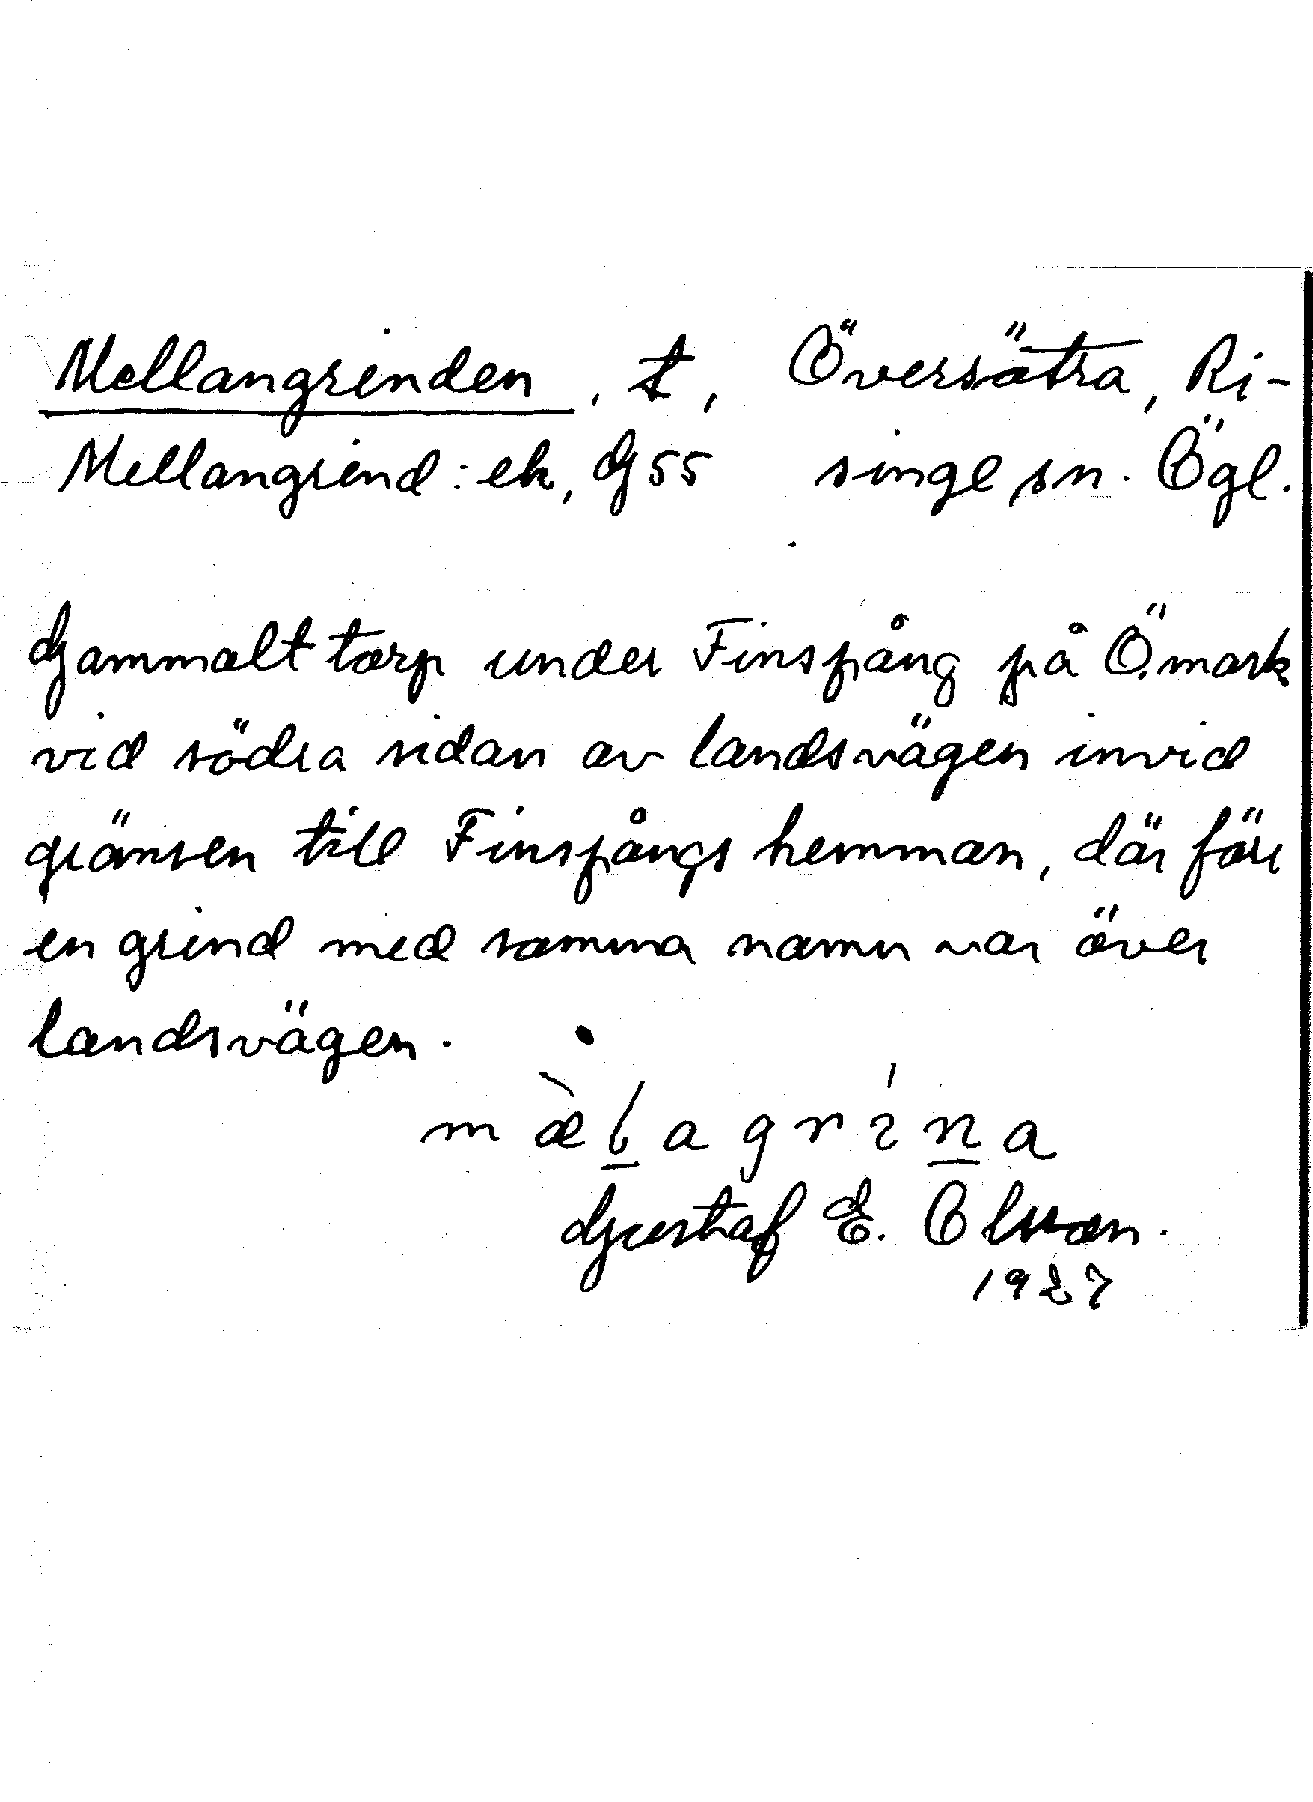 Mellangrinden, t, Översätra, Ri-
Mellangrind: ek, G 55 singe sn. Ögl.
Gammalt torp under Finspång på Ö. mark
vid södra sidan av landsvägen invid
gränsen till Finspångs hemman, där förr
en grind med samma namn var över
landsvägen.
Gustaf E. Olsson.
1927